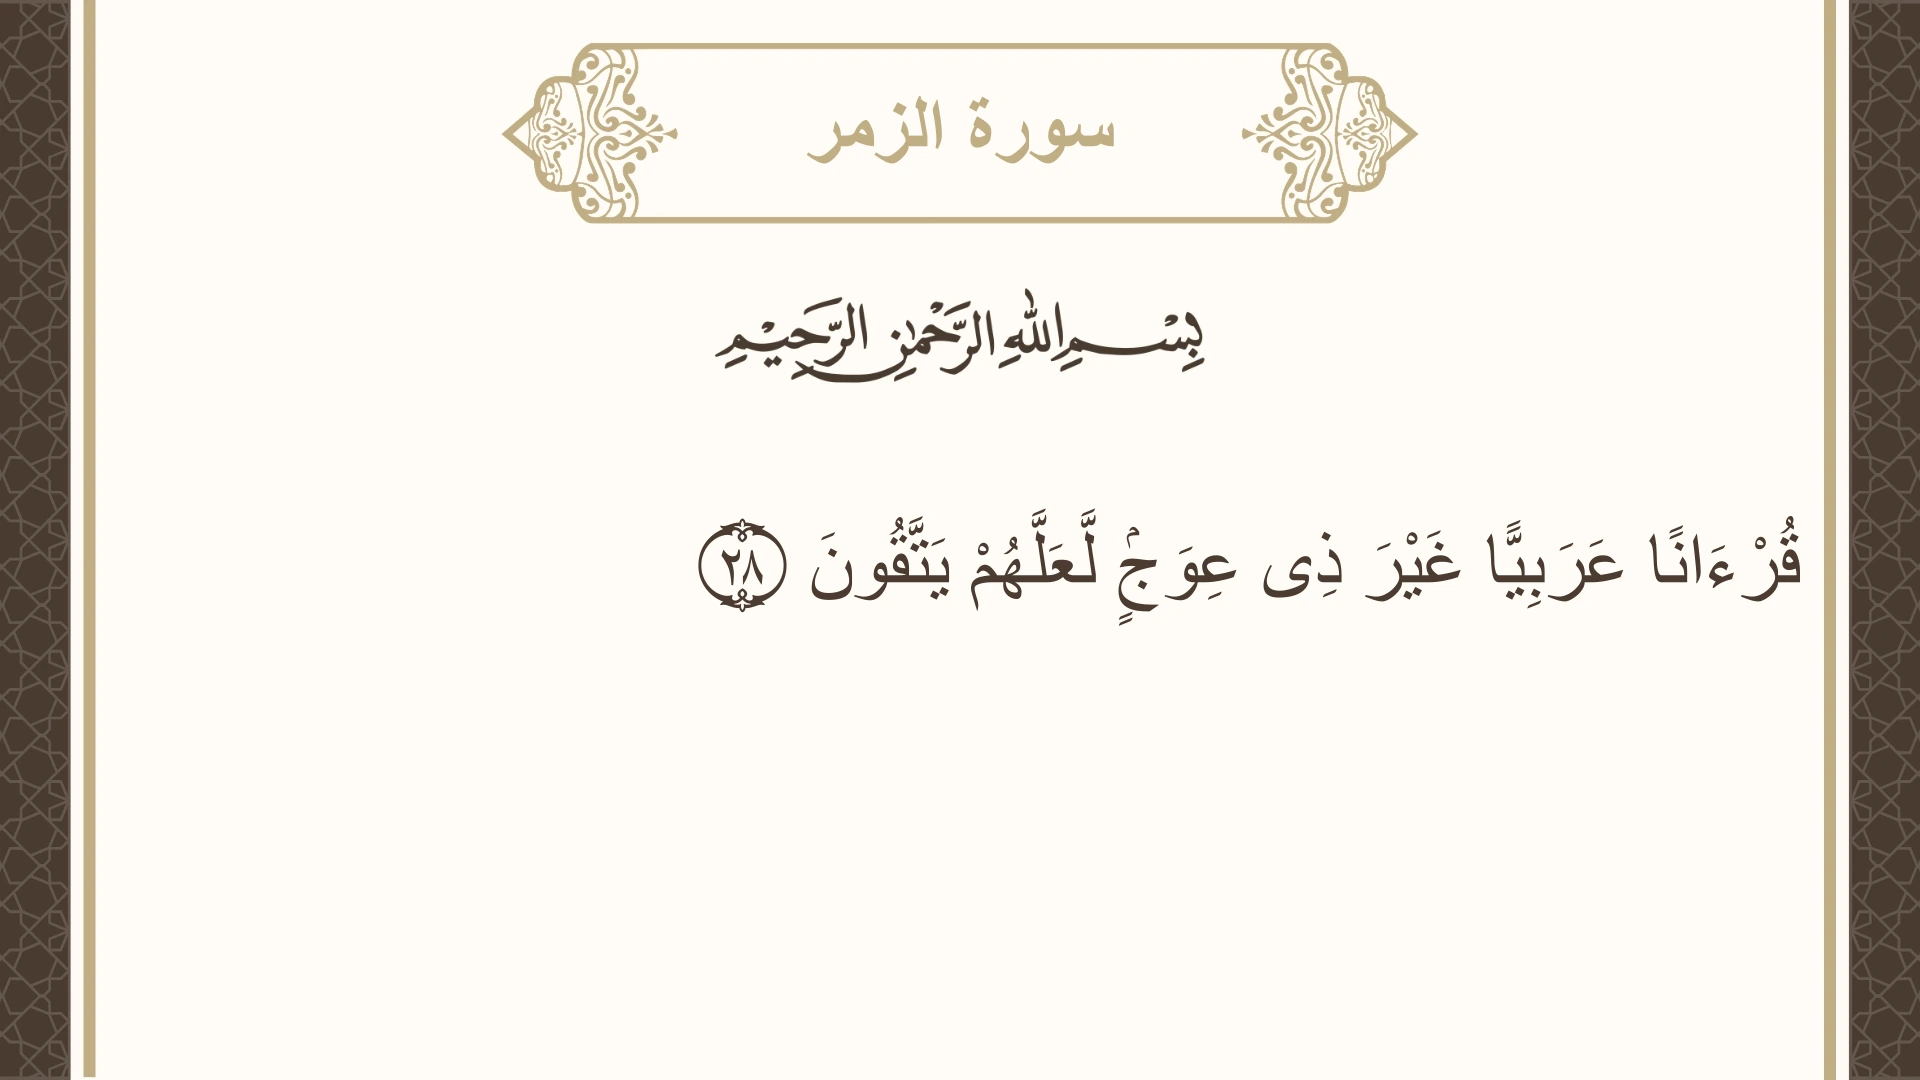 سورة الزمر
بِسْمِ اللهِ الرَّحْمٰنِ الرَّحِيْمِ
قُرْءَانًا عَرَبِيًّا غَيْرَ ذِى عِوَجٍۢ لَّعَلَّهُمْ يَتَّقُونَ ٢٨